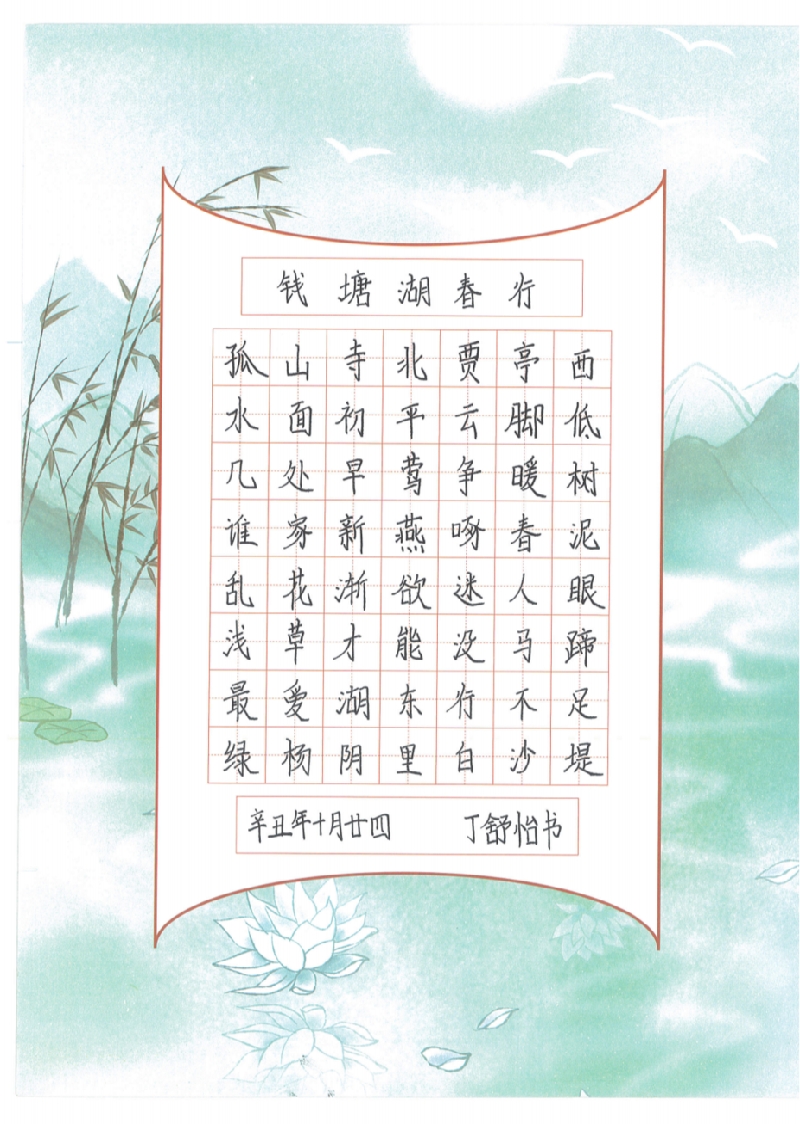 钱塘湖春行
孤山寺北贾亭西
水面初平云脚低
几处早莺争暖树
谁家新燕啄春泥
乱花渐欲迷人眼
浅草才能没马蹄
最爱湖东行不足
绿杨阴里白沙堤
辛丑年十月廿四 丁舒怡书